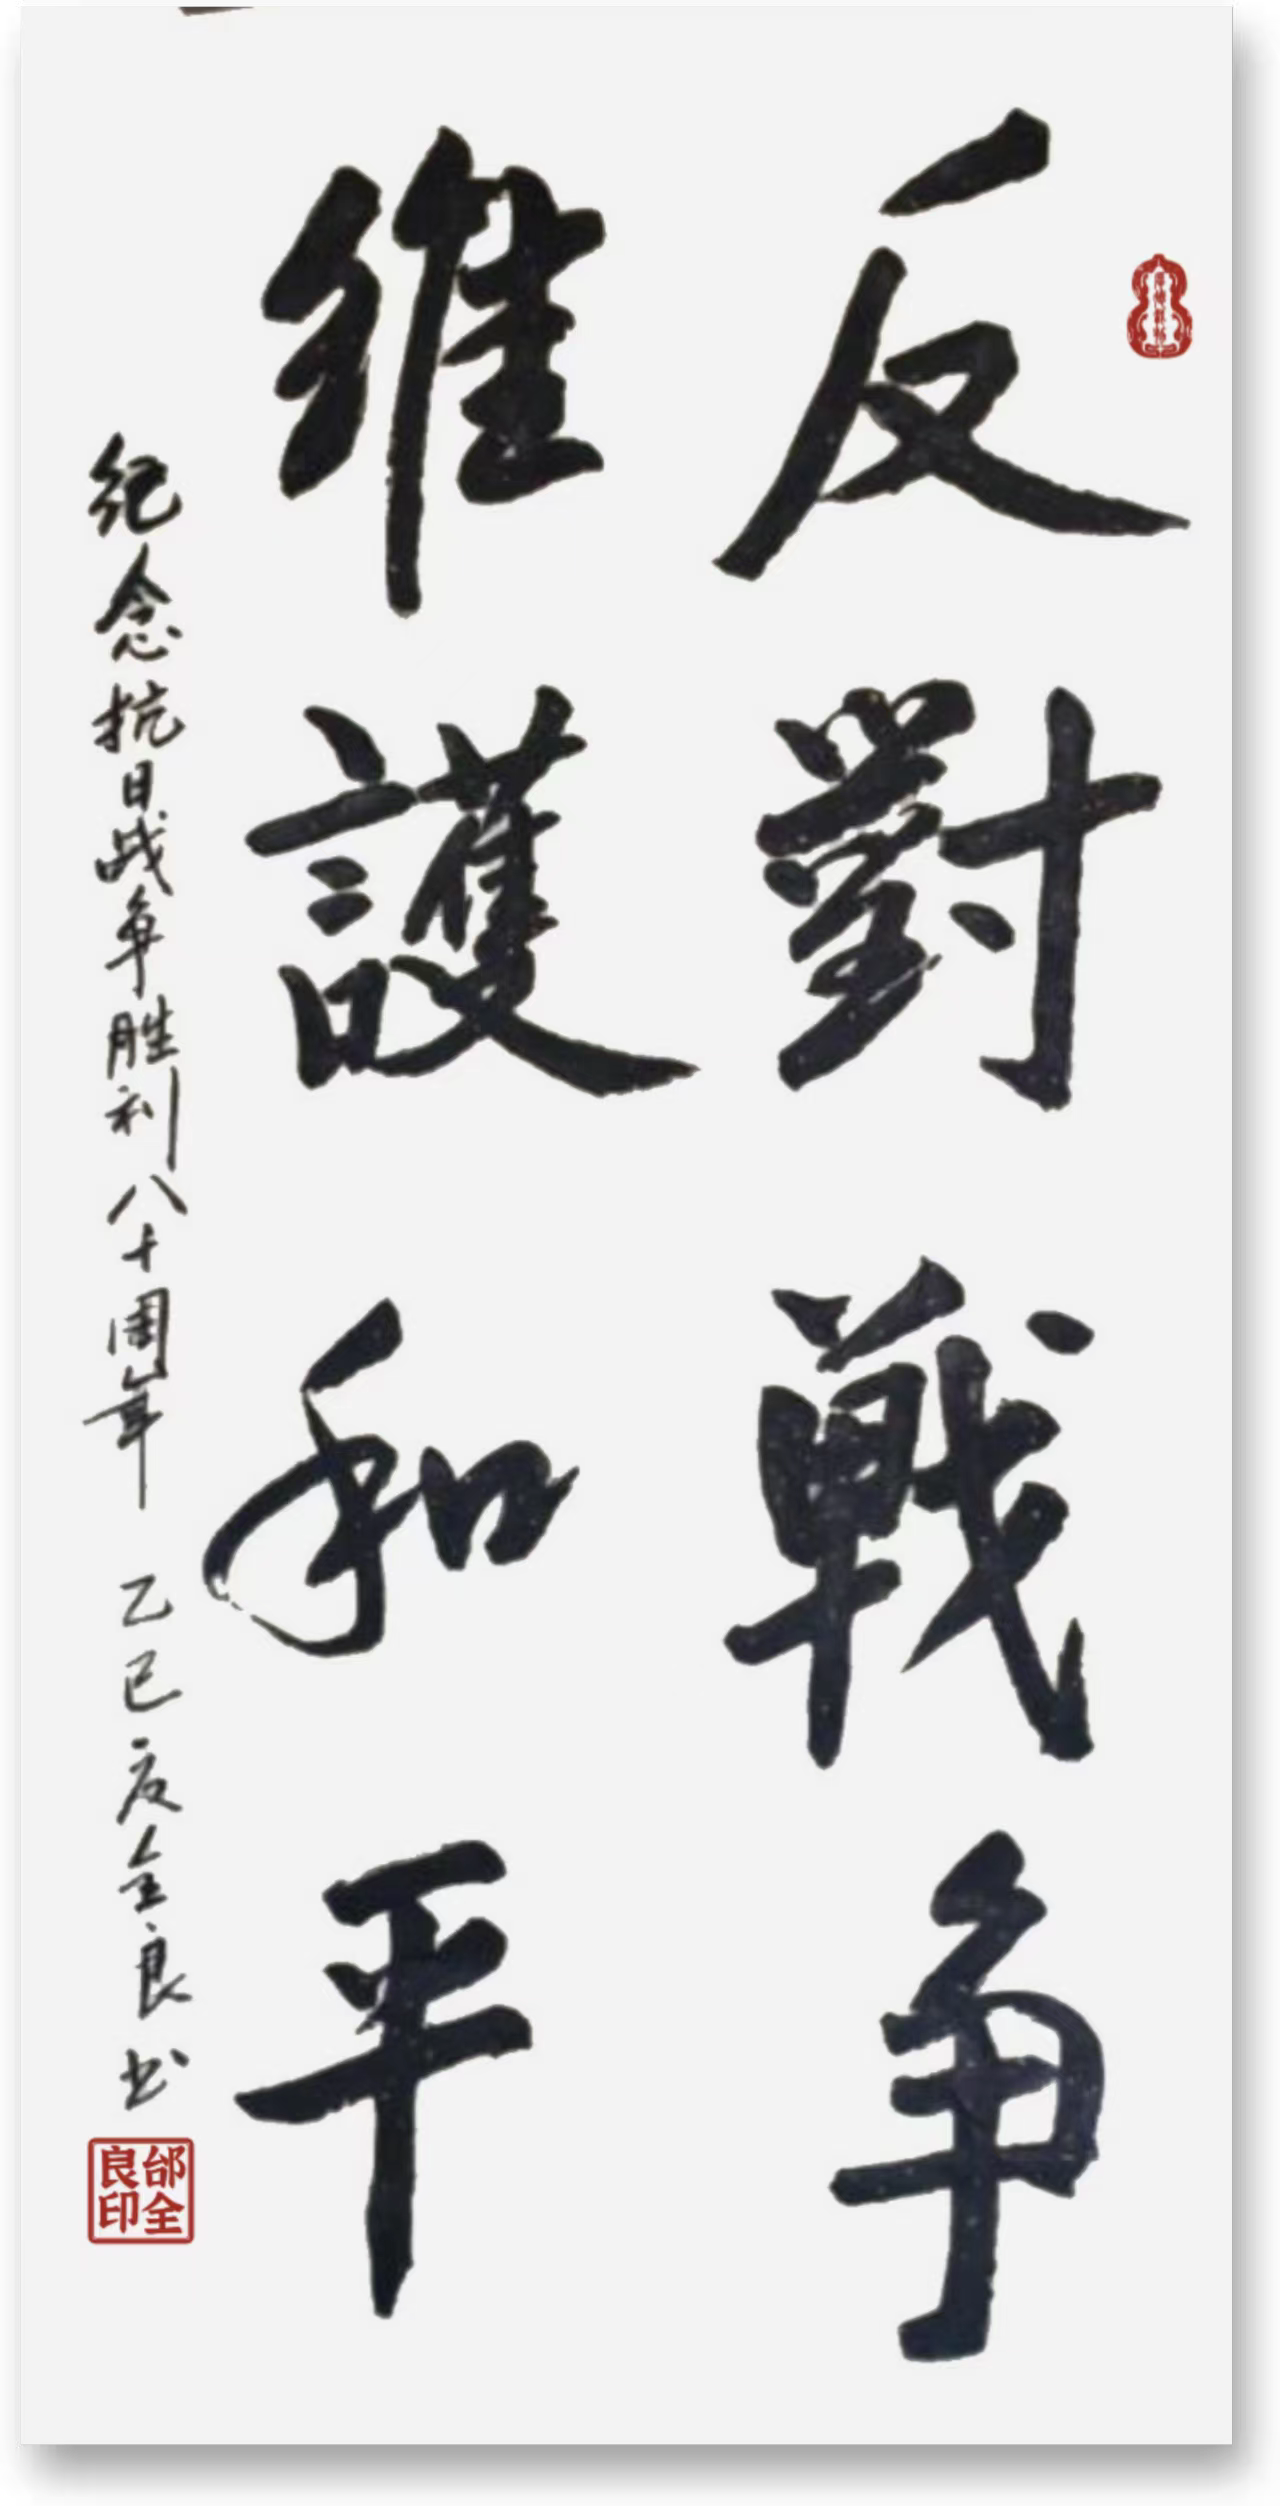 反對戰争
維護和平
纪念抗日战争胜利八十周年 乙巳夏全良书
邰全良印